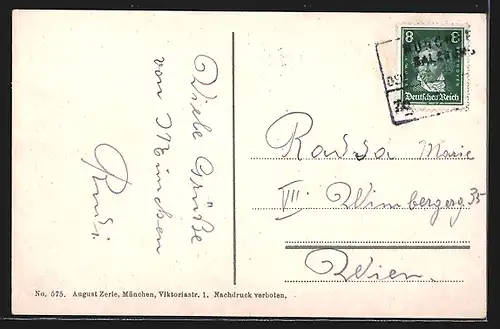 Viele Grüße
von München
Rudi.
8 8
Deutsches Reich
Radda Marie
VII Wimbergerg. 35
Wien.
No. 575. August Zerle, München, Viktoriastr. 1. Nachdruck verboten.